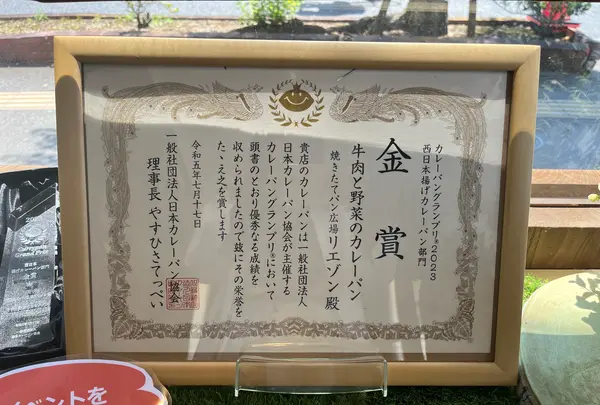 カレーパングランプリ®2023
西日本揚げカレーパン部門
金賞
牛肉と野菜のカレーパン
焼きたてパン広場 リエゾン 殿
貴店のカレーパンは一般社団法人
日本カレーパン協会が主催する
カレーパングランプリ®において
頭書のとおり優秀なる成績を
収められましたので茲にその栄誉を
たゝえ之を賞します
令和五年七月十七日
一般社団法人日本カレーパン協会
理事長 やすひさてっぺい
ベントを